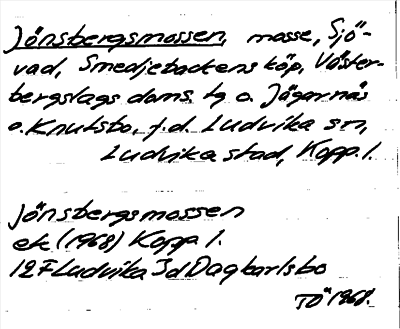 Jönsbergsmossen, mosse, Sjö-
vad, Smedjebackens köp, Väster-
bergslags doms. tg o. Jägarnäs
o. Knutsbo, f.d. Ludvika sn,
Ludvika stad, Kopp. l.
Jönsbergsmossen
ek. (1968) Kopp l.
12F Ludvika 3d Dagkarlsbo
TÖ 1968.